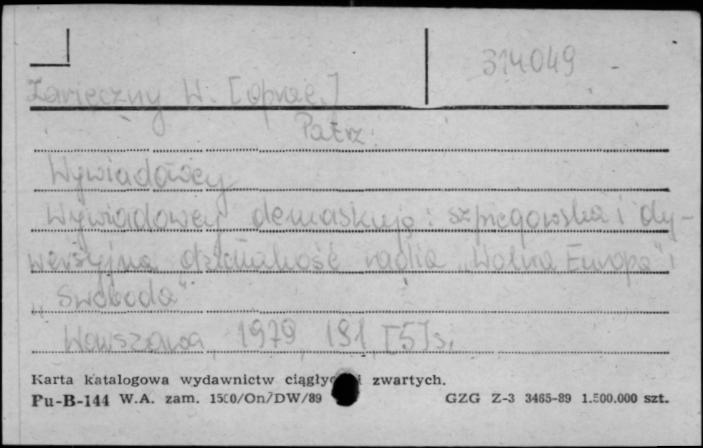 314049
Zarzeczny W. [oprac.]
Patrz:
Wywiadowcy
Wywiadowcy demaskują: szpiegowska i dy-
wersyjna działalność radia "Wolna Europa" i
"Swoboda"
Warszawa, 1979, 191 [5]s.
Karta katalogowa wydawnictw ciągłych i zwartych.
Pu-B-144 W.A. zam. 1500/On/DW/89 GZG Z-3 3465-89 1.500.000 szt.